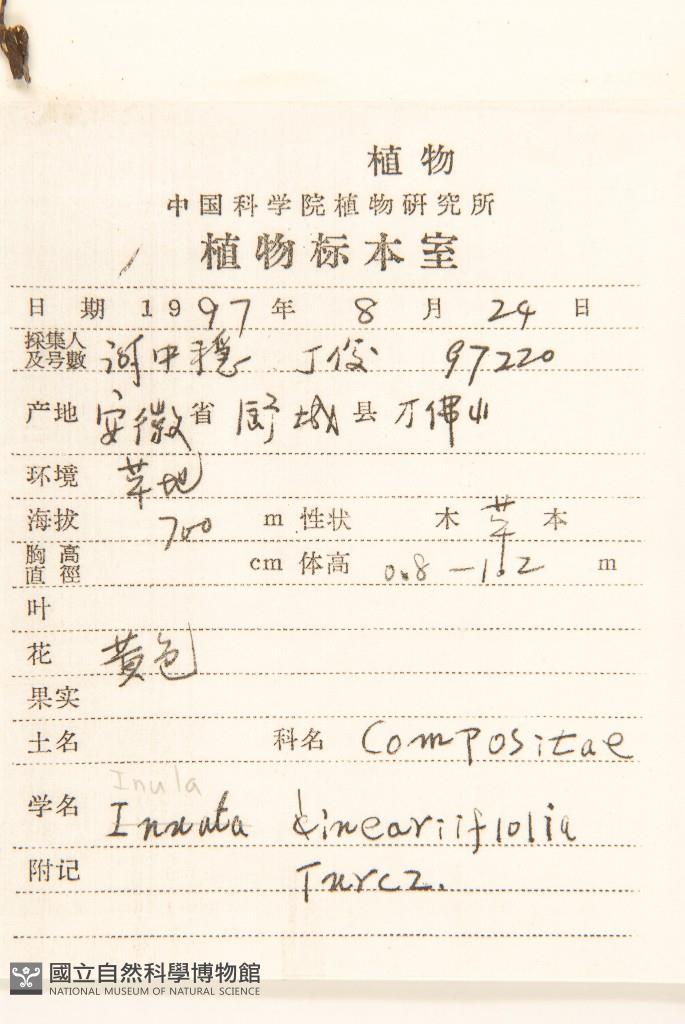 植物
中国科学院植物研究所
植物标本室
日期 1997年 8月 24日
採集人及号數 中穩 丁俊 97220
产地 安徽省 舒城县 万佛山
环境 草地
海拔 700 m 性状 木 草 本
胸高直徑 cm 体高 0.8-1.2 m
叶
花 黄色
果实
土名 科名 Compositae
Inula
学名 Inuata lineariiflolia
附记 Turcz.
國立自然科學博物館
NATIONAL MUSEUM OF NATURAL SCIENCE